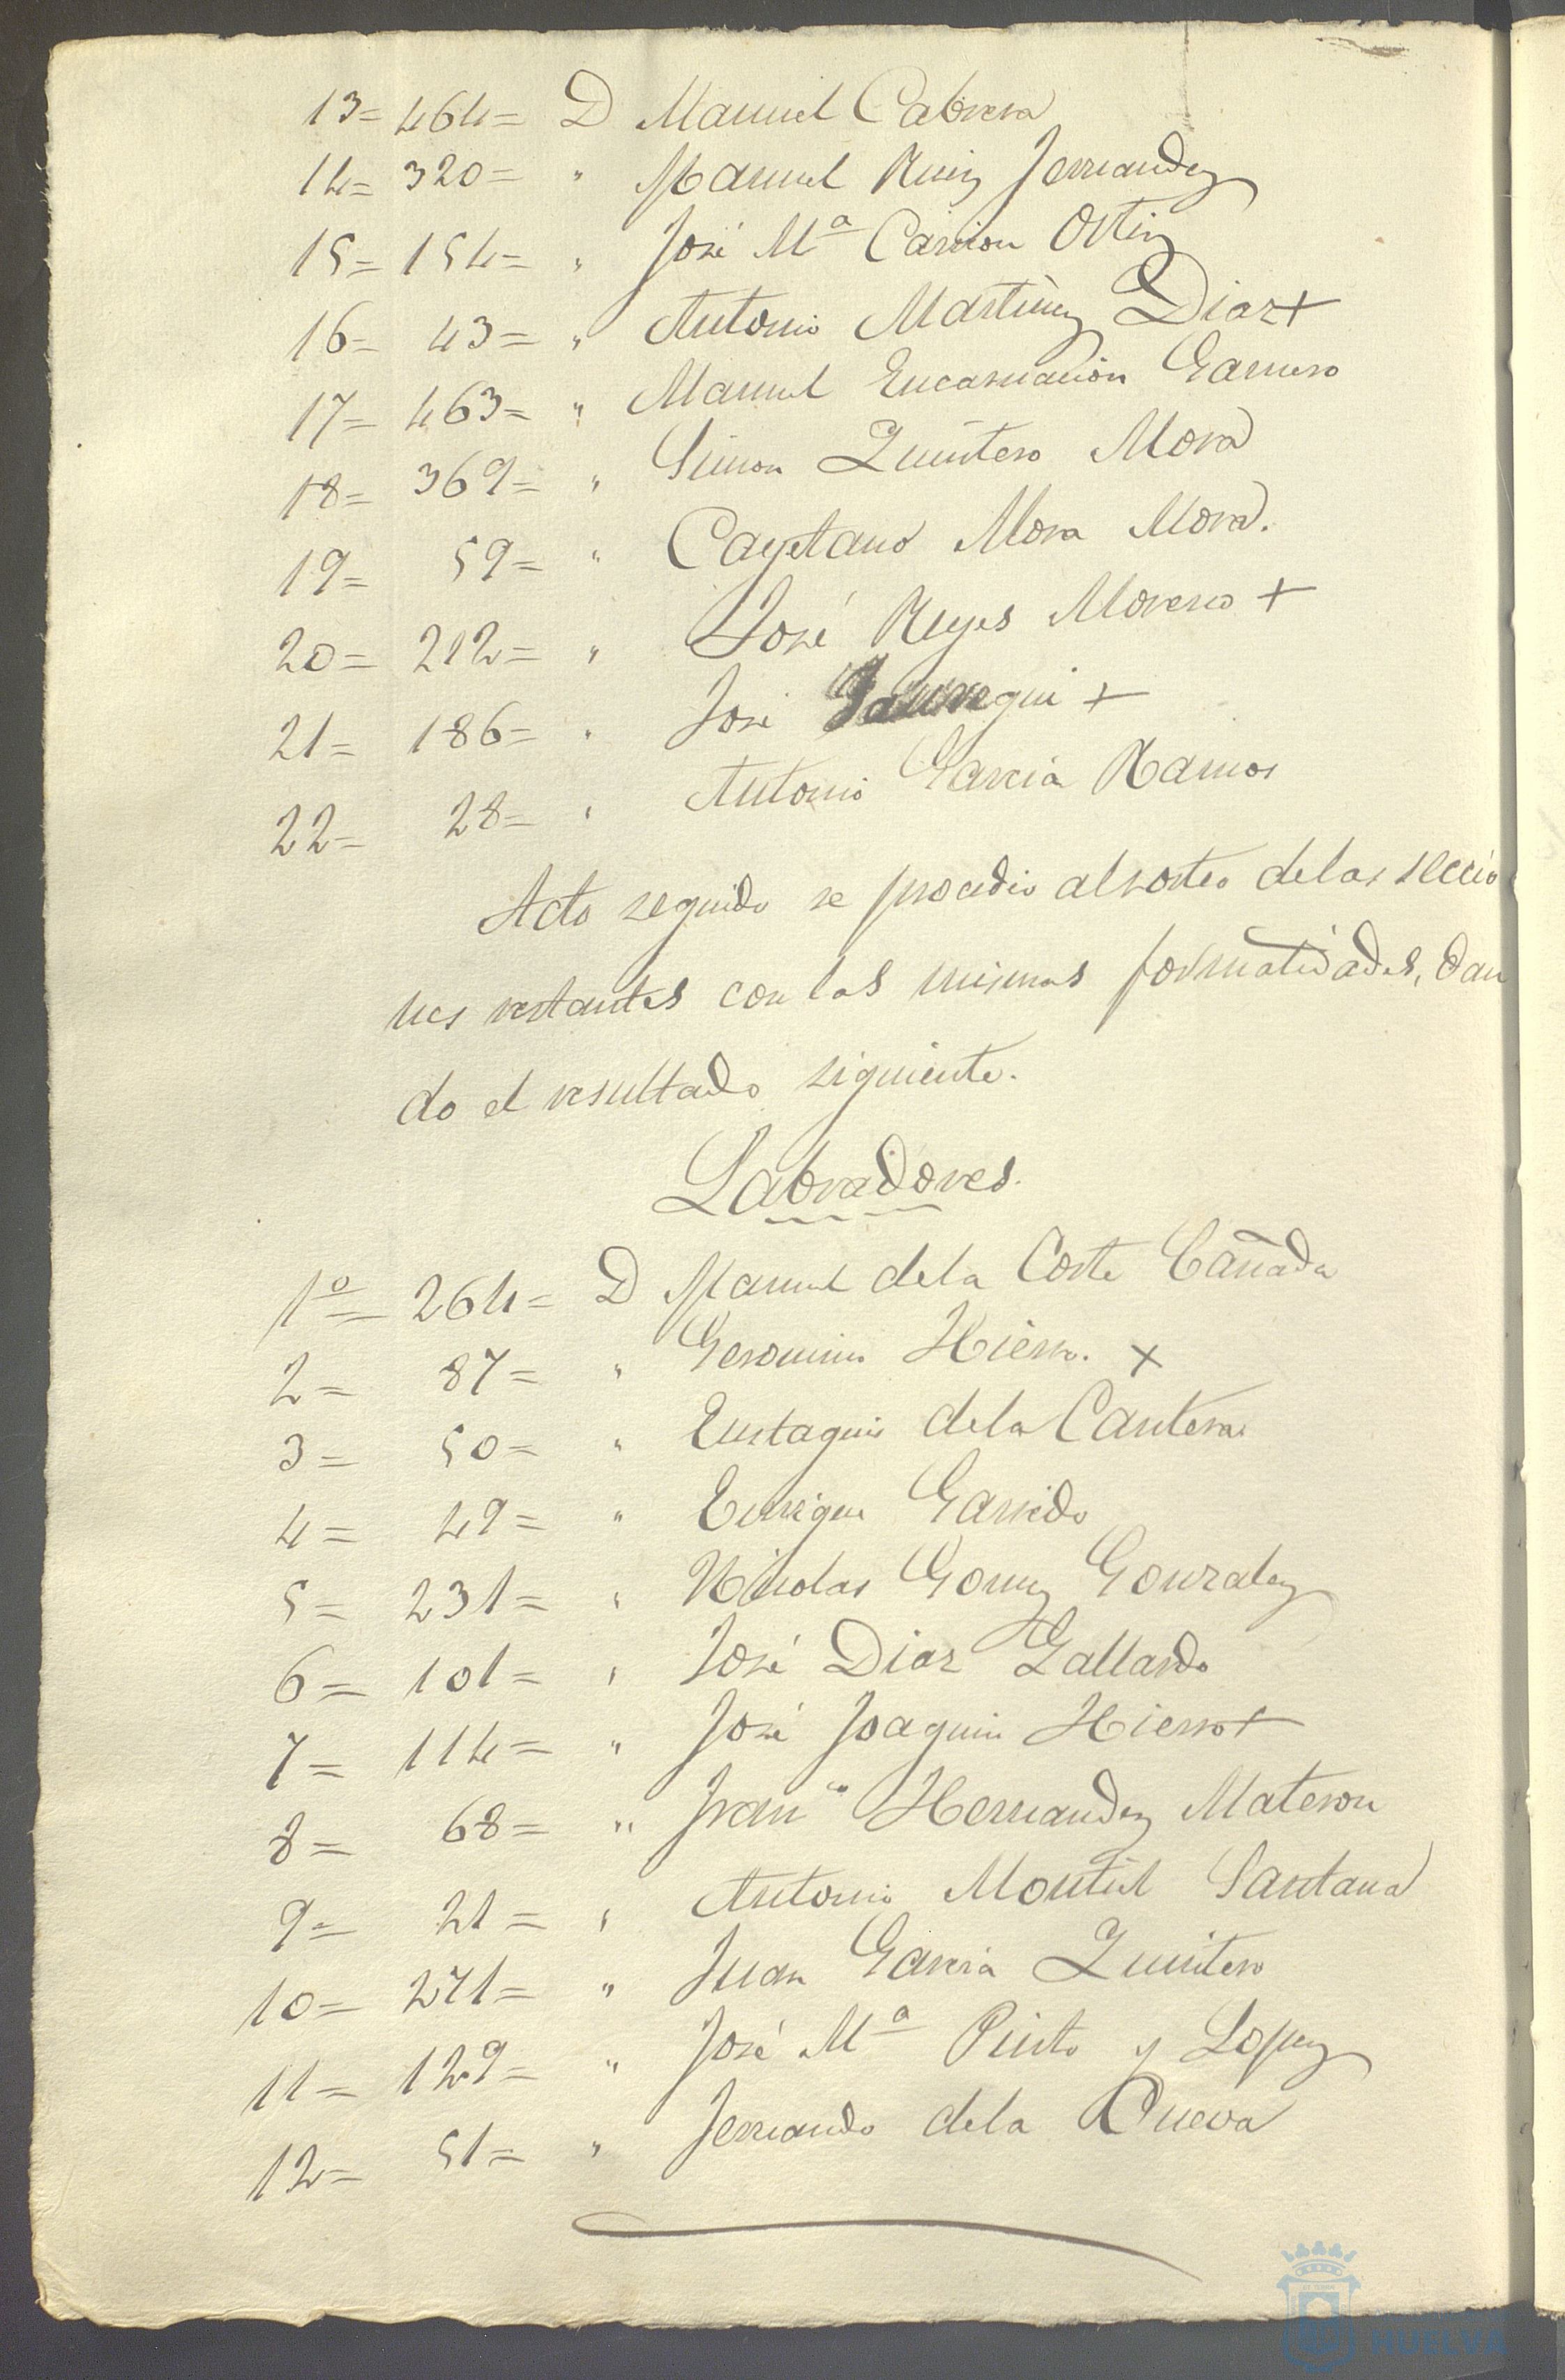 13= 464= D Manuel Cabrera
14= 320= " Manuel Ruiz Fernandez
15= 154= " José Mª Carrion Ortiz
16= 43= " Antonio Martinez Diaz +
17= 463= " Manuel Encarnación Garrero
18= 369= " Simon Quintero Mora
19= 59= " Cayetano Mora Mora.
20= 212= " José Reyes Moreno +
21= 186= " José Jauregui +
22= 28= " Antonio Garcia Ramos
Acto seguido se procedio al sorteo de las seccio
nes restantes con las mismas formalidades, dan
do el resultado siguiente.
Labradores.
1º= 264= D Manuel de la Corte Cañada
2= 87= " Geronimo Hierro. +
3= 50= " Eustaquio de la Cantera
4= 49= " Enrique Garrido
5= 231= " Nicolas Gomez Gonzalez
6= 101= " José Diaz Gallardo
7= 114= " José Joaquin Hierro +
8= 68= " Franco Hernandez Materon
9= 21= " Antonio Montiel Santana
10= 271= " Juan Garcia Quintero
11= 129= " José Mª Pinto y Lopez
12= 51= " Fernando de la Cueva
HUELVA